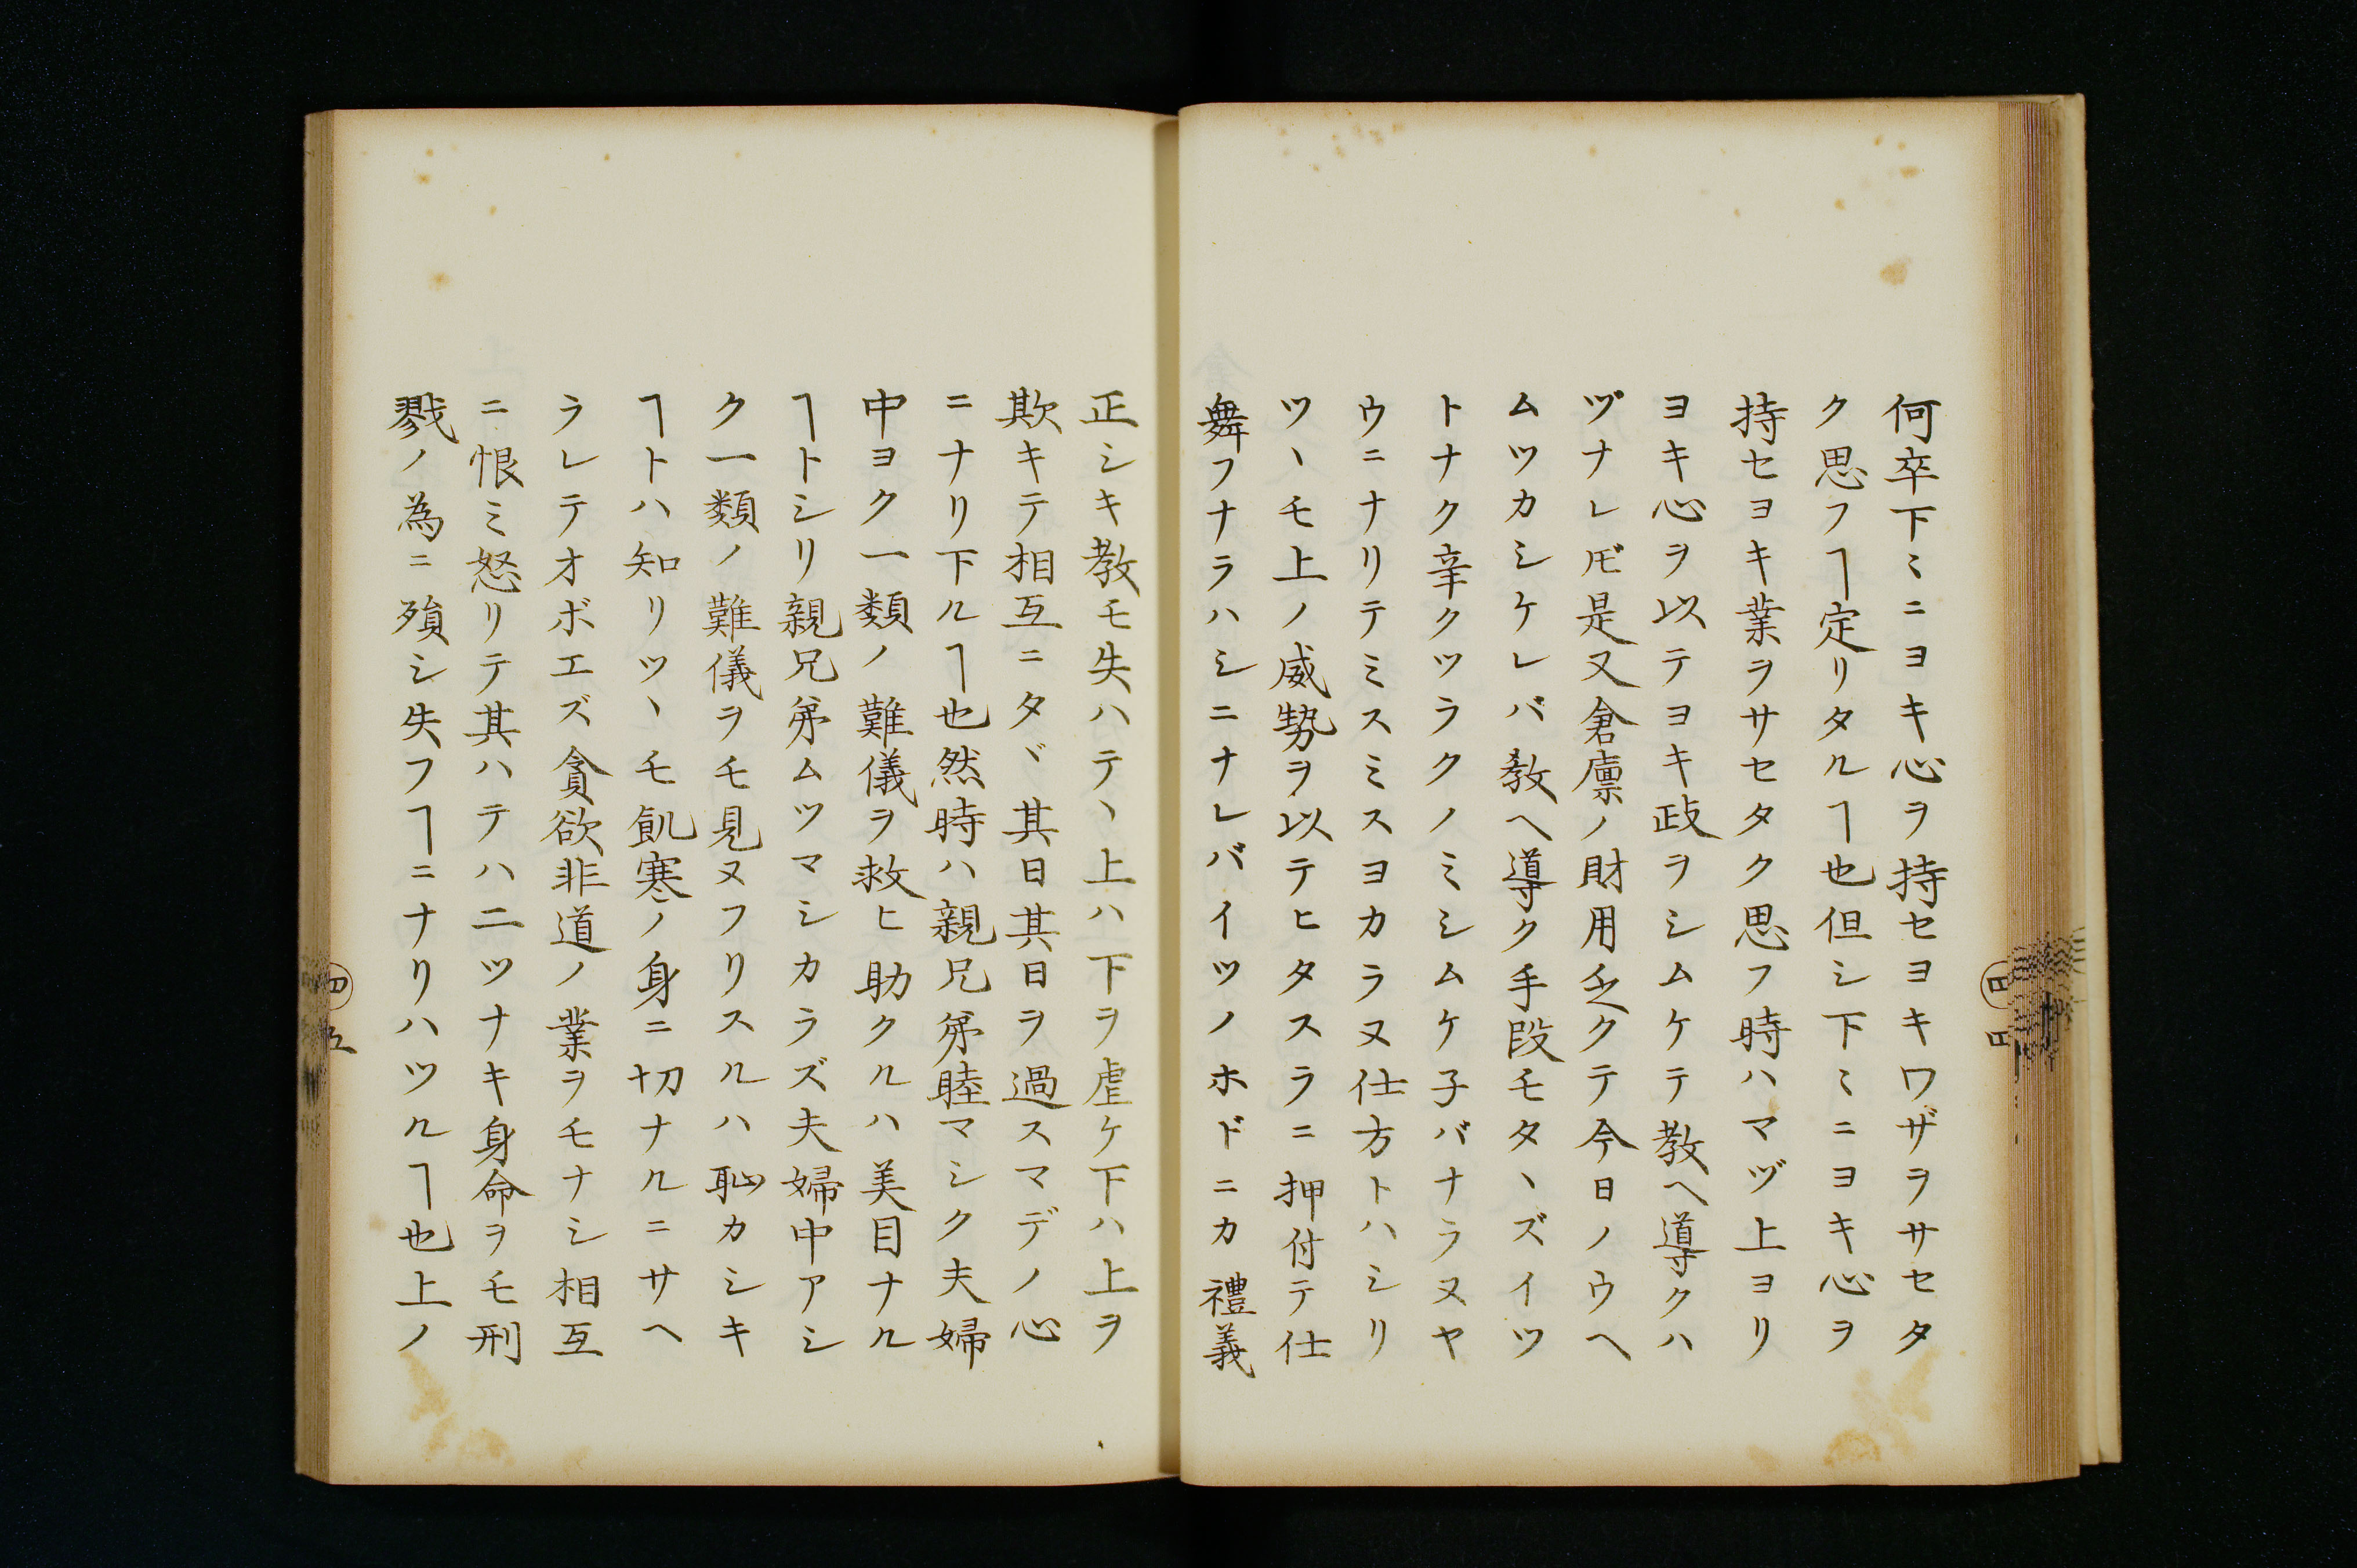 何卒下〻ニヨキ心ヲ持セヨキワザヲサセタ
ク思フヿ定リタルヿ也但シ下〻ニヨキ心ヲ
持セヨキ業ヲサセタク思フ時ハマヅ上ヨリ
ヨキ心ヲ以テヨキ政ヲシムケテ教ヘ導クハ
ヅナレ𪜈是又倉廩ノ財用乏クテ今日ノウヘ
ムツカシケレバ教ヘ導ク手段モタヽズイツ
トナク辛クツラクノミシムケ子バナラヌヤ
ウニナリテミスミスヨカラヌ仕方トハシリ
ツヽモ上ノ威勢ヲ以テヒタスラニ押付テ仕
舞フナラハシニナレバイツノホドニカ禮義
正シキ教モ失ハテヽ上ハ下ヲ虐ケ下ハ上ヲ
欺キテ相互ニタヾ其日其日ヲ過スマデノ心
ニナリ下ルヿ也然時ハ親兄弟睦マシク夫婦
中ヨク一類ノ難儀ヲ救ヒ助クルハ美目ナル
ヿトシリ親兄弟ムツマシカラズ夫婦中アシ
ク一類ノ難儀ヲモ見ヌフリスルハ恥カシキ
ヿトハ知リツヽモ飢寒ノ身ニ切ナルニサヘ
ラレテオボエズ貪欲非道ノ業ヲモナシ相互
ニ恨ミ怒リテ其ハテハ二ツナキ身命ヲモ刑
戮ノ為ニ殞シ失フヿニナリハツルヿ也上ノ
四
四
四
五